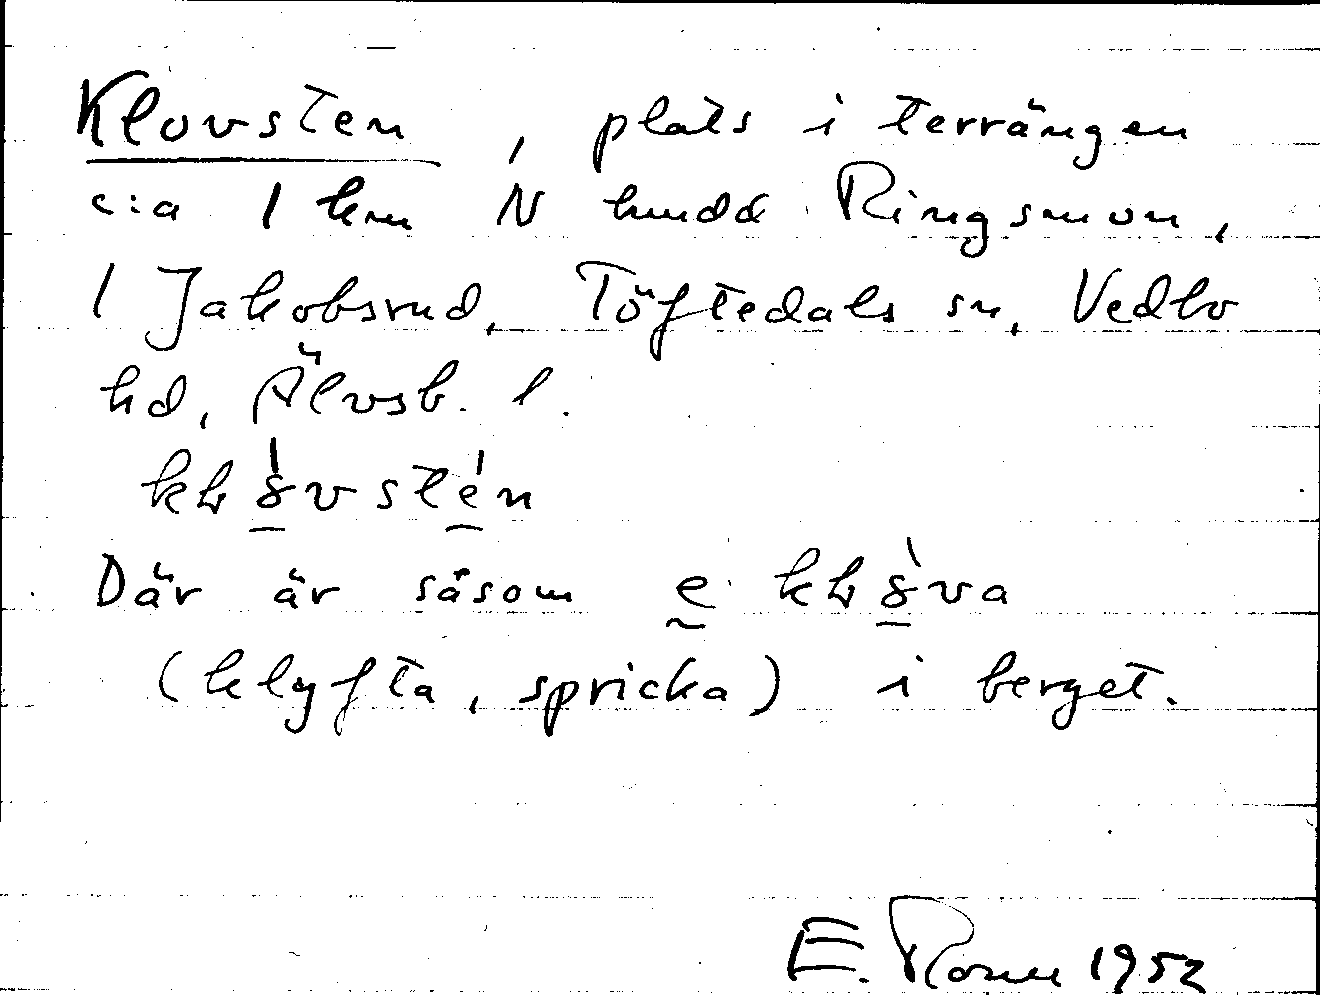 Klovsten, plats i terrängen
c:a 1 km N hmdd Ringsmon,
1 Jakobsrud, Töftedals sn, Vedbo
hd, Älvsb. l.
Där är såsom e
(klyfta, spricka) i berget.
E. 1952